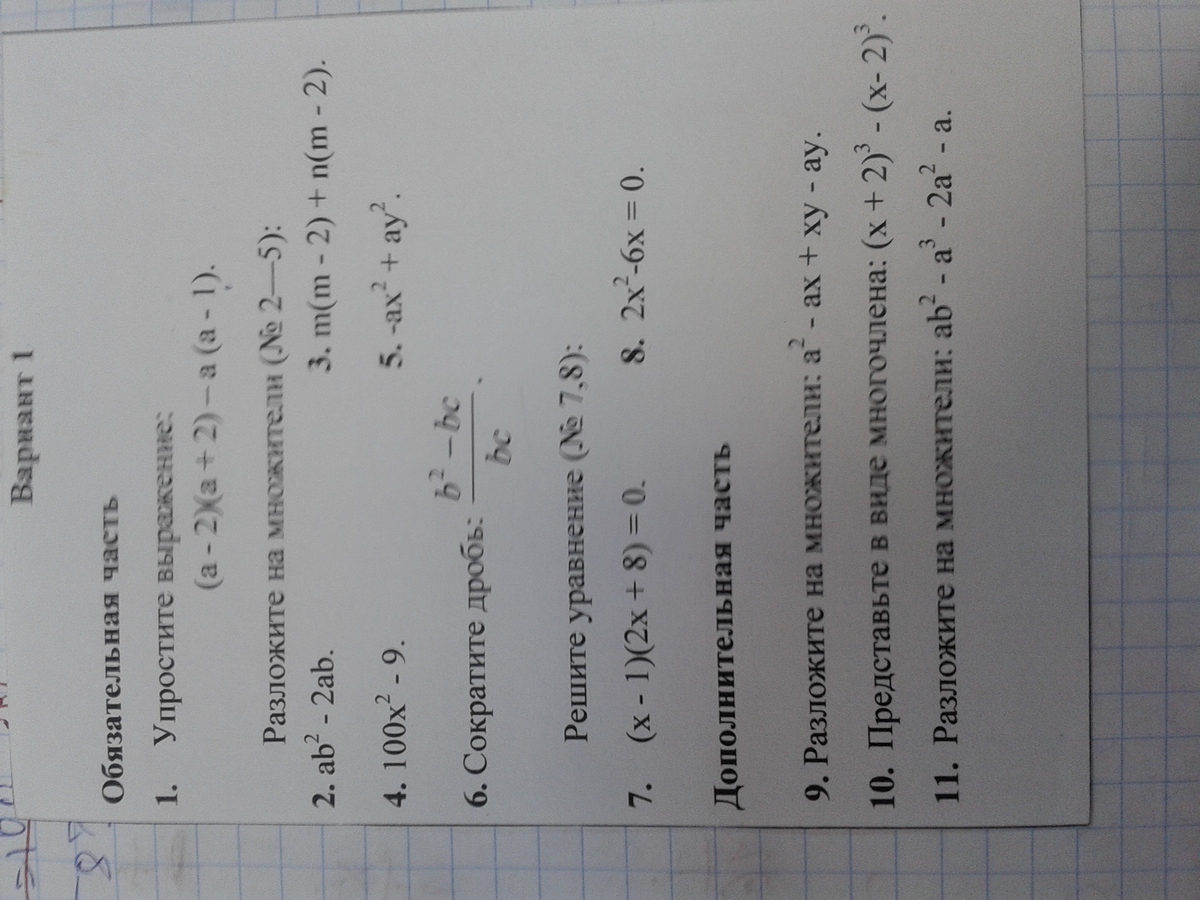 Вариант 1
Обязательная часть
1. Упростите выражение:
(a - 2)(a + 2) – a (a - 1).
Разложите на множители (№ 2—5):
2. ab² - 2ab. 3. m(m - 2) + n(m - 2).
4. 100x² - 9. 5. -ax² + ay².
6. Сократите дробь: \frac{b² – bc}{bc}.
Решите уравнение (№ 7,8):
7. (x - 1)(2x + 8) = 0. 8. 2x²-6x = 0.
Дополнительная часть
9. Разложите на множители: a² - ax + xy - ay.
10. Представьте в виде многочлена: (x + 2)³ - (x- 2)³.
11. Разложите на множители: ab² - a³ - 2a² - a.